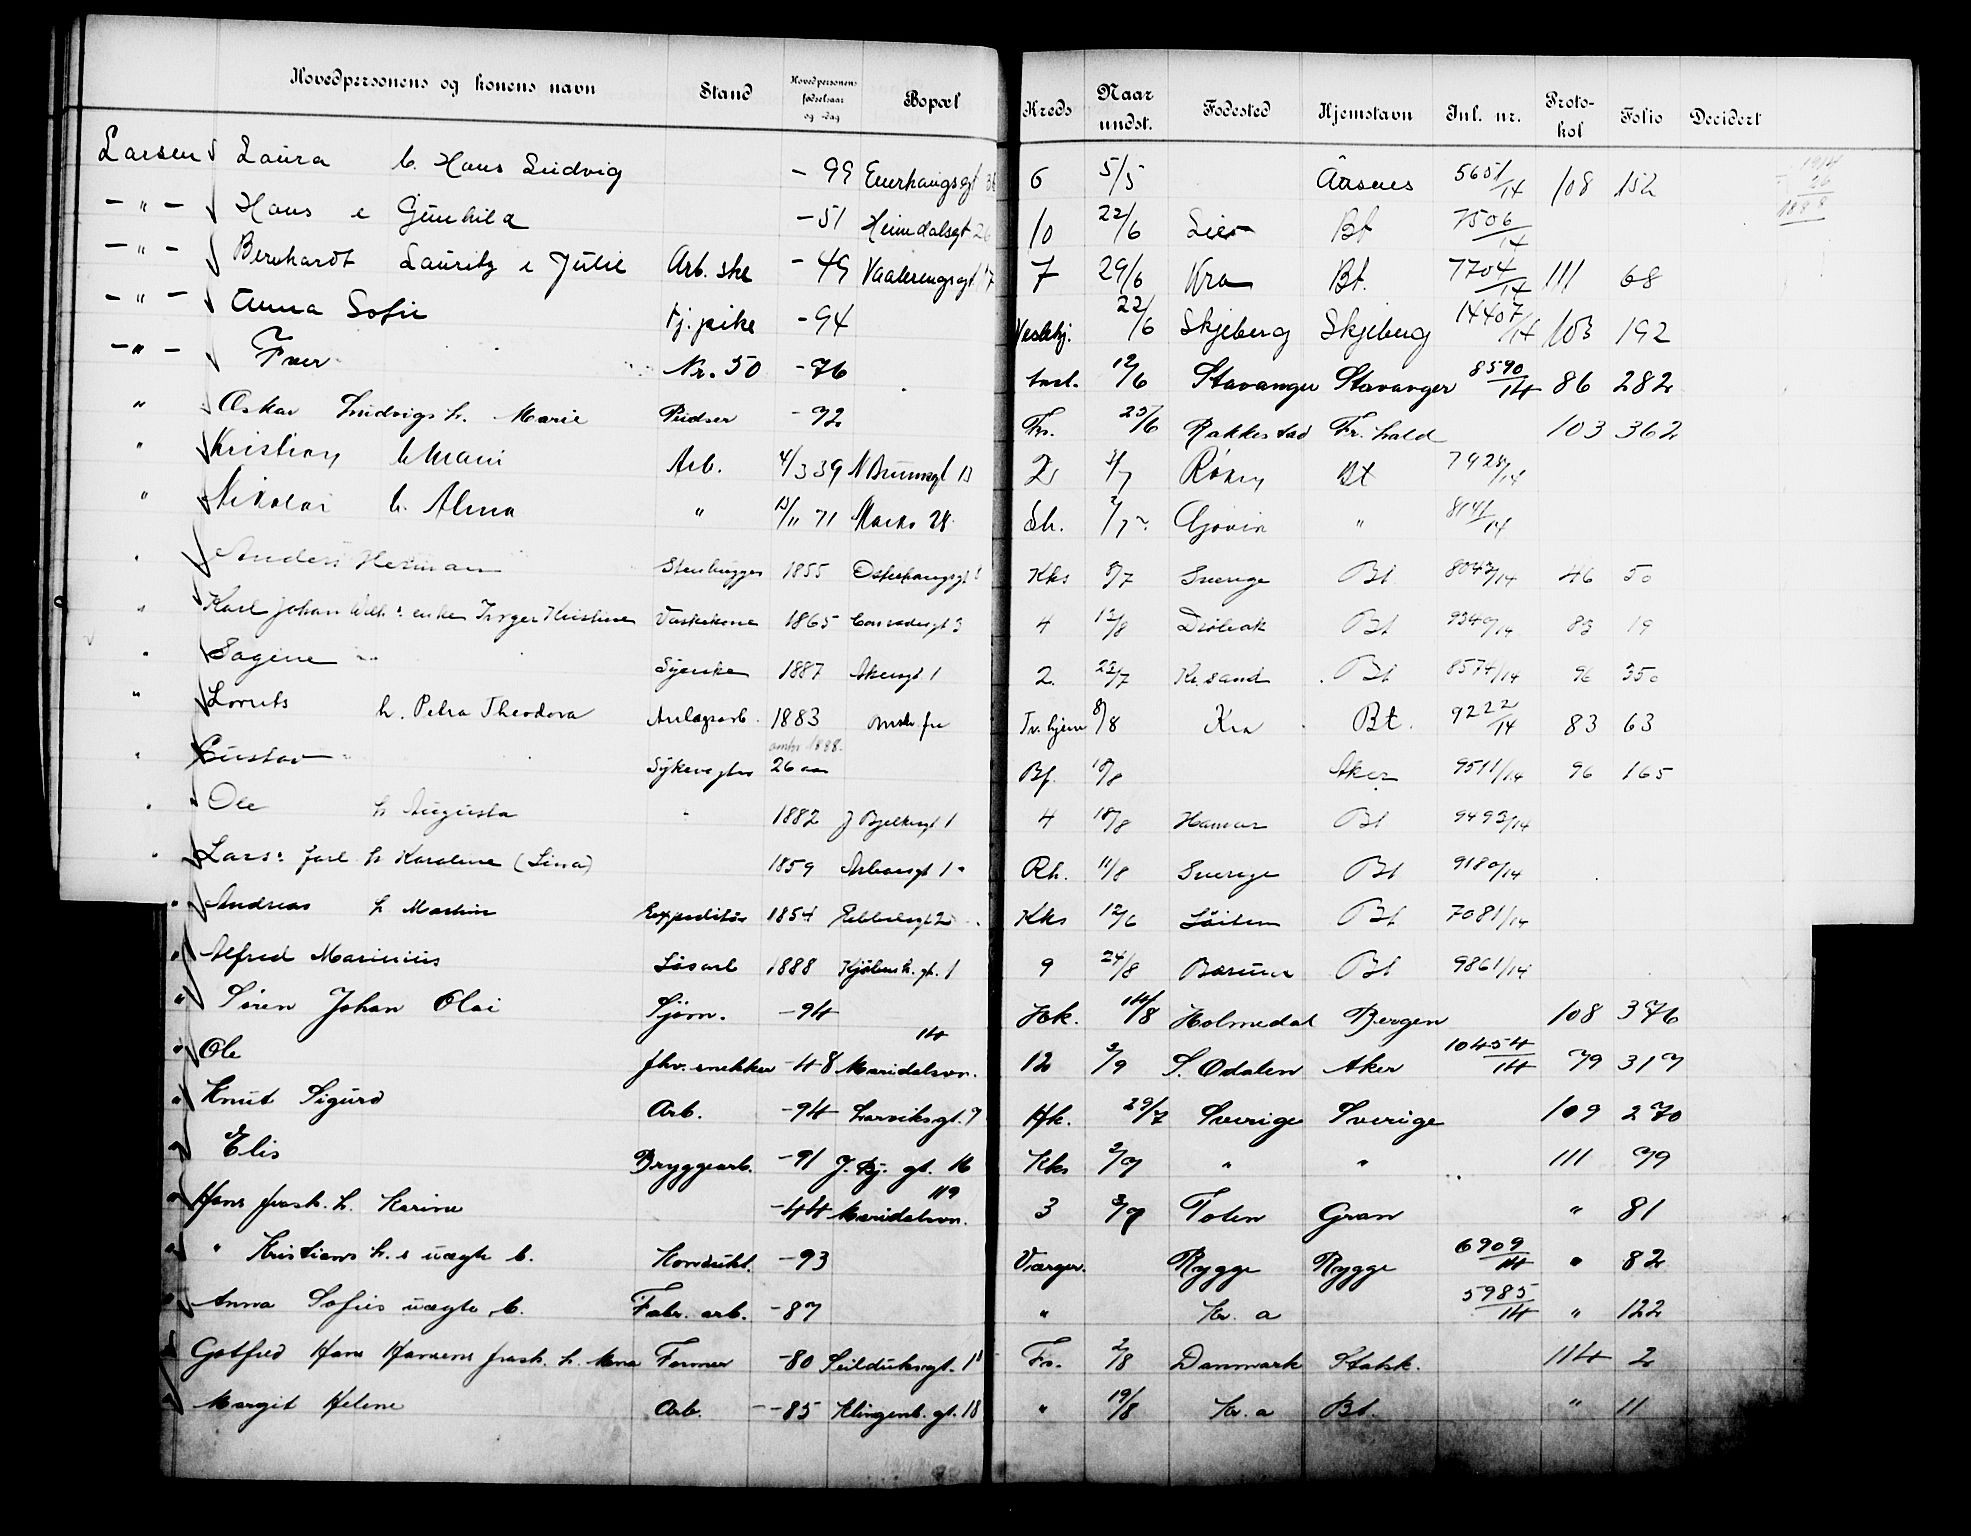 Hovedpersonens og konens navn Stand Hovedpersonens fødselsaar og -dag Bopæl Kreds Naar undst. Fødested Hjemstavn Inl. nr. Proto-kol Folio Decidert
Larsen Laura b. Hans Ludvig - 99 Enerhaugsgt 6 5/5 Aasnes 5651/14 108 152
- " - Hans e Gunhild - 51 Heimdalsgt 26 10 22/6 Lier Bt 7506/14
- " - Bernhardt Lauritz e Julie Arb. ske - 49 Vaalerengsgt 17 7 29/6 Kra Bt. 7704/14 111 68
- " - Anna Sofie tj. pike - 94 22/6 Skjeberg Skjeberg 14407/14 103 192
- " - Iver Nr. 50 - 76 12/6 Stavanger Stavanger 8590/14 86 282
" Oskar Ludvigs h. Marie Pudser - 72 Fr. 25/6 Rakkestad Fr. hald 103 362
" Kristian h Marie Arb. 4/3 39 2 /7 Røken Bt 7925/14
" Nikolai h. Alma " 13/11 71 Markv 28 Sh. 2/7 Gjøvik " 8141/14
" Anders Herman Stenhugger 1855 Østerhaugsgt Kks 8/7 Sverige Bt 8043/14 46 50
" Karl Johan Wilh s enke Inger Kristine Vaskekone 1865 Conradisgt 3 4 12/8 Drøbak Bt 9340/14 83 19
" Sagine Syerske 1887 Akersgt 1 2. 22/7 Kr. sand Bt 8574/14 96 350
" Lorents h. Petra Theodora Anlægsarb. 1883 Tv. hjem 8/8 Kra Bt. 9222/14 83 63
" Gustav Sykevogter omkr 1888. 26 aar Bf. 10/8 Aker 9511/14 96 165
" Ole h Augusta " 1882 J Bjelkesgt 1 4 18/8 Hamar Bt 9493/14
" Lars: Jarl h Karoline (Lina) 1859 Rh. 11/8 Sverige Bt 9180/14
" Andreas h Martine Expeditør 1854 Kks 12/6 Løiten Bt 7081/14
" Alfred Marinius Løsarb 1888 Kjølberk. gt. 1 9 24/8 Bærum Bt 9861/14
" Søren Johan Olai Sjøm. - 94 Hk. 14/8 Holmedal Bergen 108 376
" Ole fhv. snekker - 48 Maridalsvn. 14 12 2/9 S. Odalen Aker 10454/14 79 317
" Knut Sigurd Arb. - 94 Larviksgt. 7 Hk. 29/7 Sverige Sverige 109 270
" Elis Bryggearb. - 91 J. Bj. gt. 16 Kks 2/7 " " 111 79
" Hans frask. h. Karine - 44 Maridalsvn. 119 3 3/7 Toten Gran " 81
" " Kristians h. s uægte b. Kondukt. - 93 Værger. Rygge Rygge 6909/14 " 82
" Anna Sofies uægte b. Fabr. arb. - 87 " Kr. a 5985/14 " 122
" Gotfred Hans Hansens frask. h. Anna Former - 80 Seilduksgt. 11 Fr. 2/8 Danmark Statsk. 114 2
" Margit Helene Arb. - 85 Klingenb. gt. 18 " 19/8 Kr. a Bt. " 11
1914
26
1888